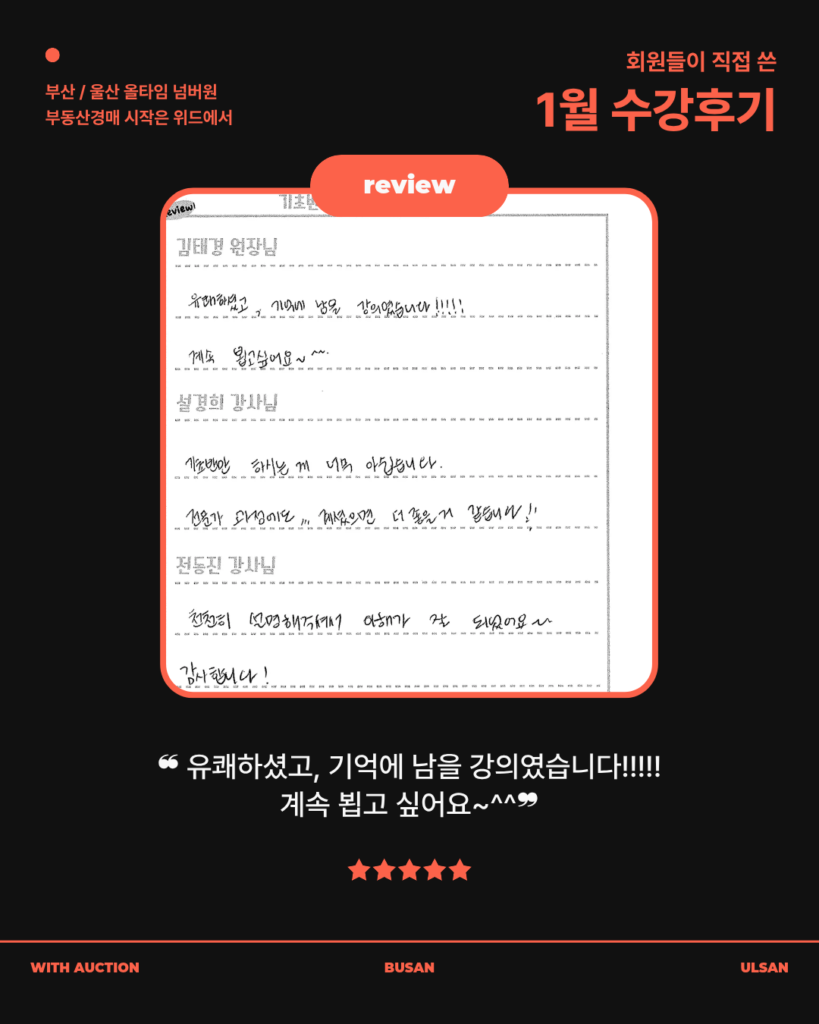 부산 / 울산 올타임 넘버원
부동산경매 시작은 위드에서
회원들이 직접 쓴
1월 수강후기
review
eview!
기초반
김태경 원장님
유쾌하셨고, 기억에 남을 강의였습니다!!!!!
계속 뵙고싶어요~ ^^
설경희 강사님
기초반만 하시는 게 너무 아쉽습니다.
전문가 과정에도,,, 계셨으면 더 좋을 거 같습니다!!
전동진 강사님
천천히 설명해주셔서 이해가 잘 되었어요~
감사합니다!
❝ 유쾌하셨고, 기억에 남을 강의였습니다!!!!!
계속 뵙고 싶어요~^^❞
WITH AUCTION
BUSAN
ULSAN